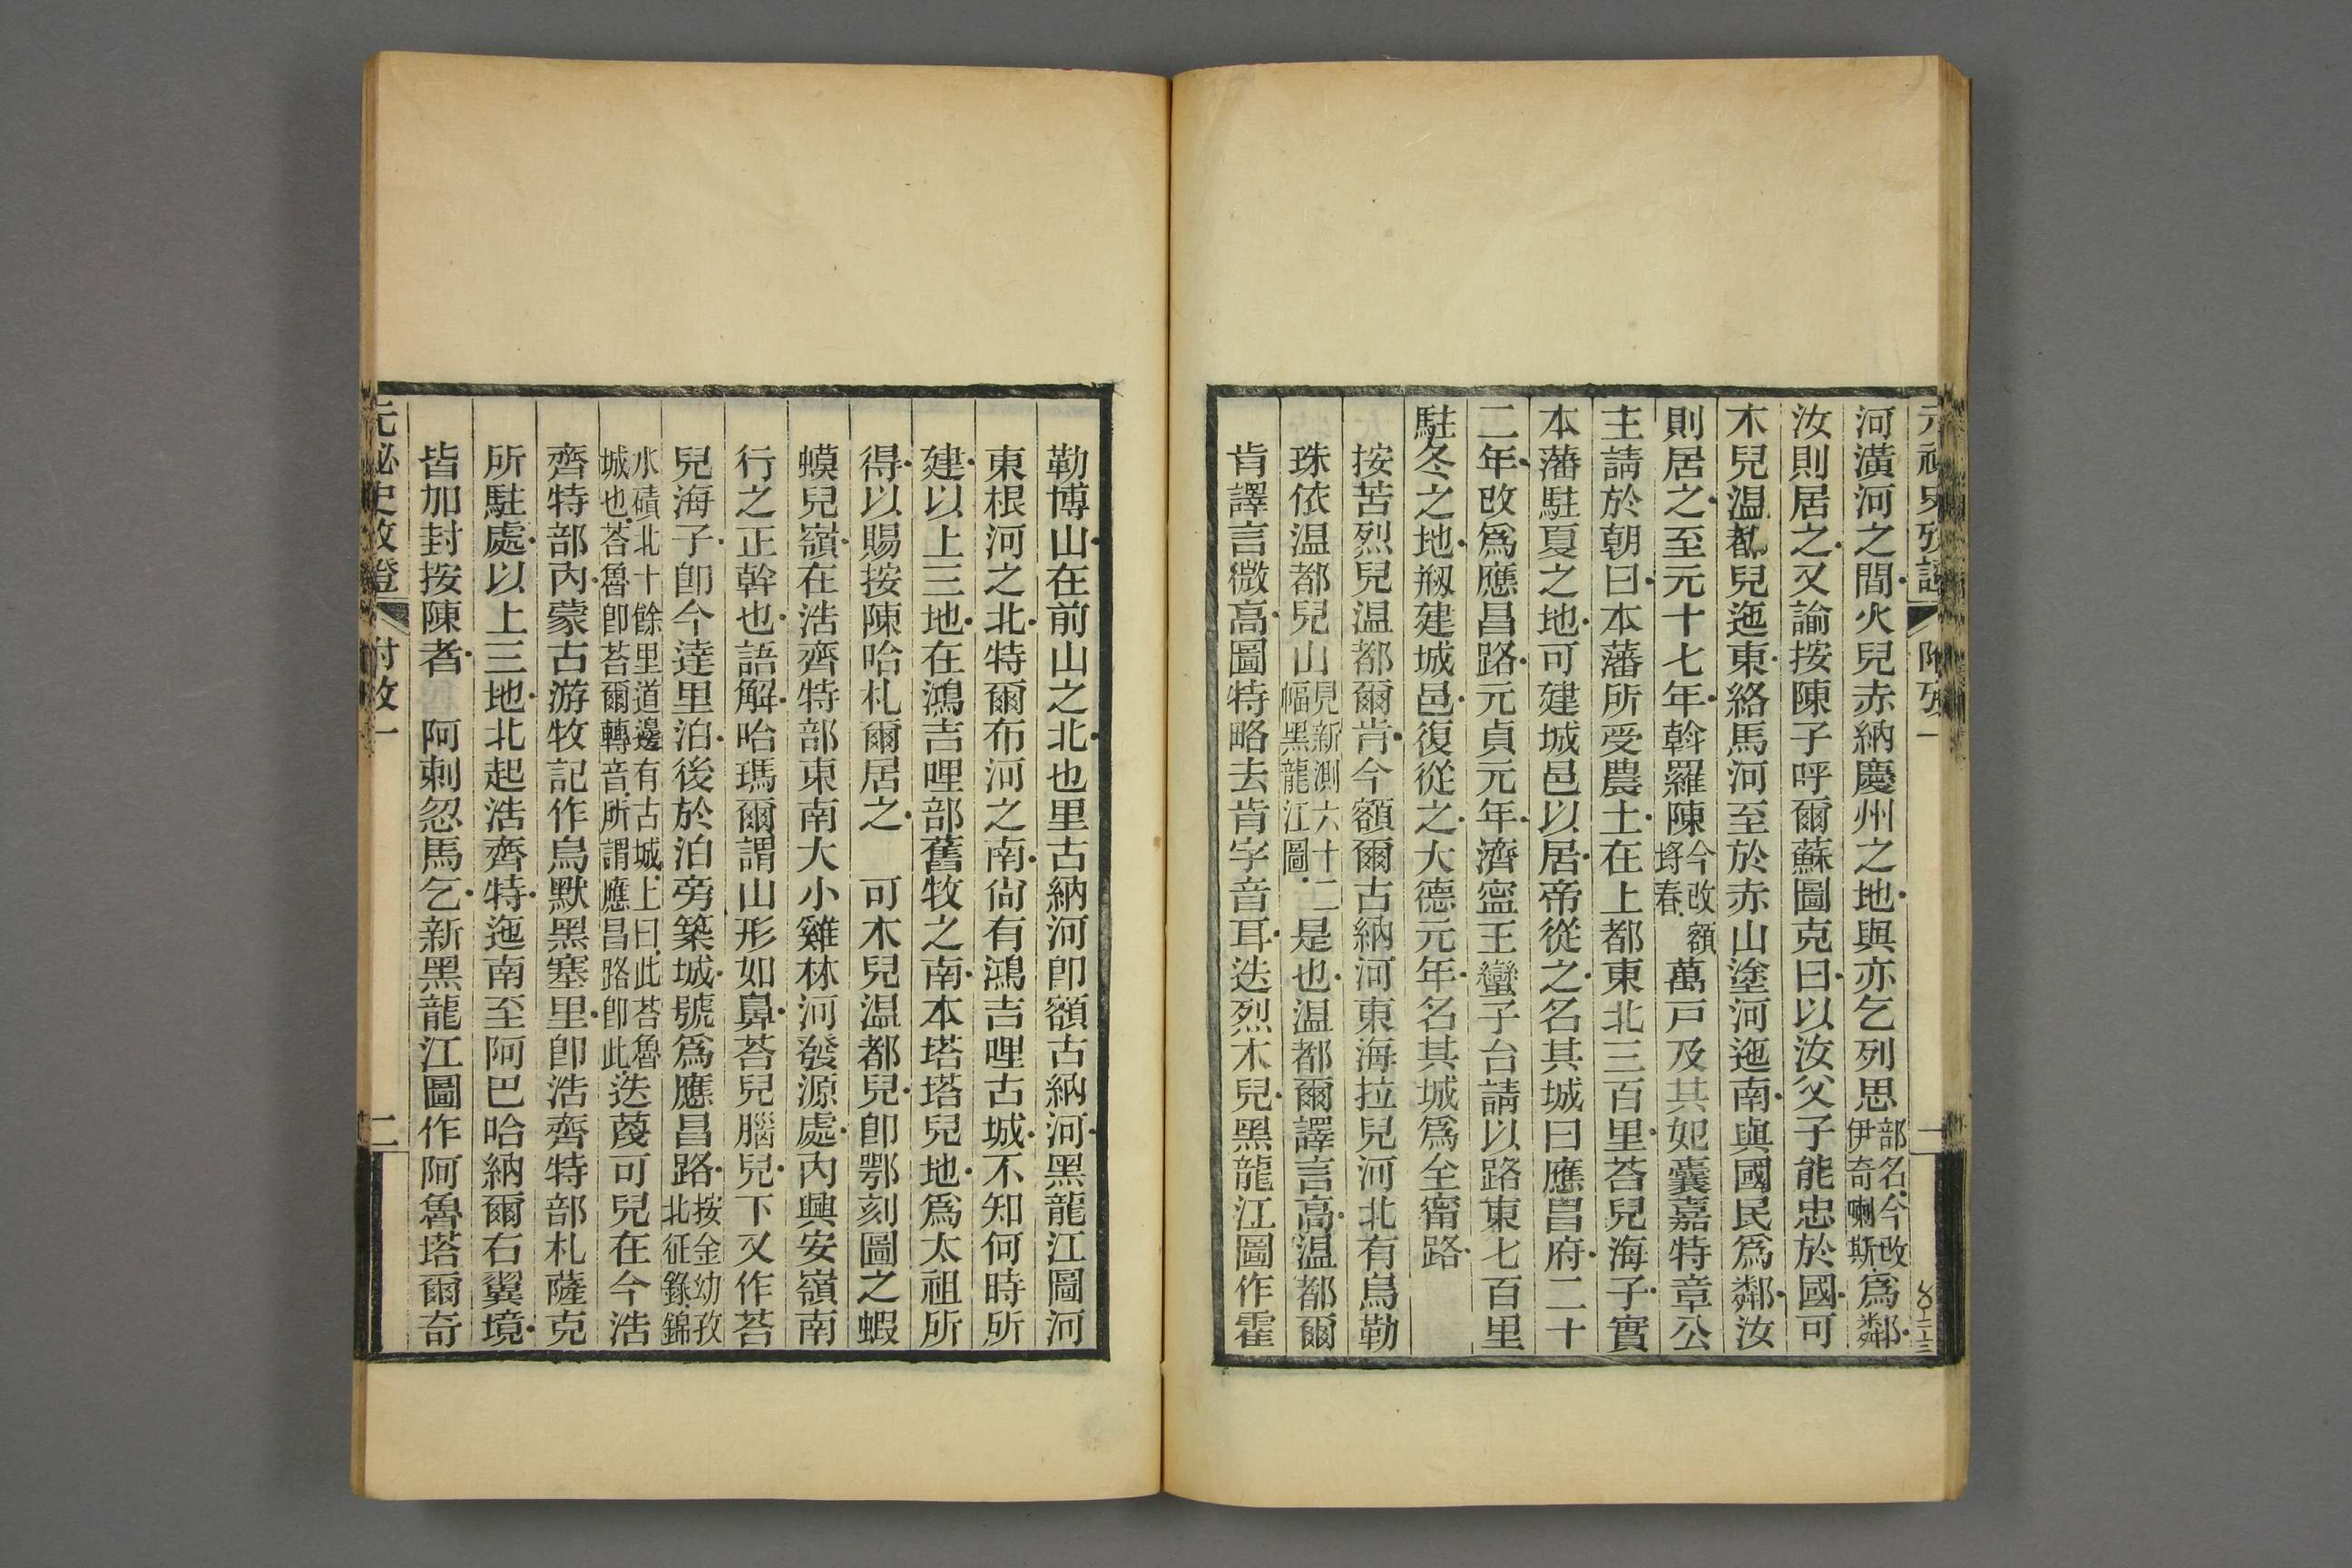 河潢河之間火兒赤納慶州之地與亦乞列思部名今改伊奇喇斯爲鄰
汝則居之又諭按陳子呼爾蘇圖克曰以汝父子能忠於國可
木兒温都兒迤東絡馬河至於赤山塗河迤南與國民爲鄰汝
則居之至元十七年斡羅陳今改額埒春萬戸及其妃囊嘉特章公
主請於朝曰本藩所受農土在上都東北三百里荅兒海子實
本藩駐夏之地可建城邑以居帝從之名其城曰應昌府二十
二年改爲應昌路元貞元年濟寍王蠻子台請以路東七百里
駐冬之地剏建城邑復從之大德元年名其城爲全甯路
按苦烈兒温都爾肯今額爾古納河東海拉兒河北有烏勒
珠依温都兒山見新測六十二幅黑龍江圖是也温都爾譯言高温都爾
肯譯言微高圖特略去肯字音耳迭烈木兒黑龍江圖作霍
勒博山在前山之北也里古納河卽額古納河黑龍江圖河
東根河之北特爾布河之南尙有鴻吉哩古城不知何時所
建以上三地在鴻吉哩部舊牧之南本塔塔兒地爲太祖所
得以賜按陳哈札爾居之　可木兒温都兒卽鄂刻圖之蝦
蟆兒嶺在浩齊特部東南大小雞林河發源處內興安嶺南
行之正幹也語解哈瑪爾謂山形如鼻荅兒腦兒下又作荅
兒海子卽今達里泊後於泊旁築城號爲應昌路按金幼孜北征錄錦
水磧北十餘里道邊有古城上曰此荅魯城也荅魯卽荅爾轉音所謂應昌路卽此迭蔑可兒在今浩
齊特部內蒙古游牧記作烏默黑塞里卽浩齊特部札薩克
所駐處以上三地北起浩齊特迤南至阿巴哈納爾右翼境
皆加封按陳者　阿剌忽馬乞新黑龍江圖作阿魯塔爾奇
元祕史攷證　附攷一　二